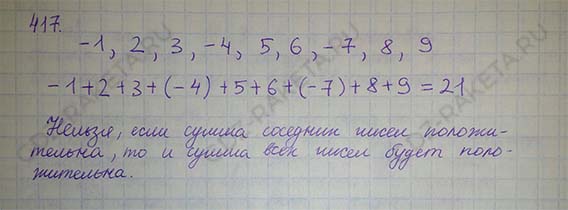 417.
-1, 2, 3, -4, 5, 6, -7, 8, 9
-1+2+3+(-4)+5+6+(-7)+8+9=21
Нельзя, если сумма соседних чисел положи-
тельна, то и сумма всех чисел будет поло-
жительна.